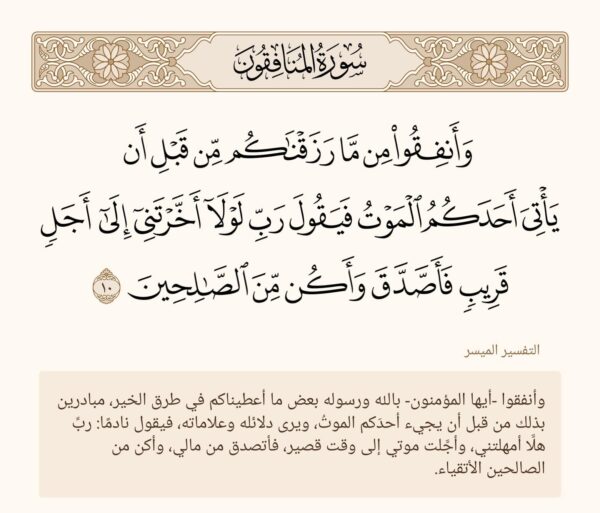 سُورَةُ المُنَافِقُونَ
وَأَنفِقُوا۟ مِن مَّا رَزَقْنَٰكُم مِّن قَبْلِ أَن
يَأْتِىَ أَحَدَكُمُ ٱلْمَوْتُ فَيَقُولَ رَبِّ لَوْلَآ أَخَّرْتَنِىٓ إِلَىٰٓ أَجَلٍ
قَرِيبٍ فَأَصَّدَّقَ وَأَكُن مِّنَ ٱلصَّٰلِحِينَ ١٠
التفسير الميسر
وأنفقوا -أيها المؤمنون- بالله ورسوله بعض ما أعطيناكم في طرق الخير، مبادرين
بذلك من قبل أن يجيء أحدَكم الموتُ، ويرى دلائله وعلاماته، فيقول نادمًا: ربِّ
هلَّا أمهلتني، وأجَّلت موتي إلى وقت قصير، فأتصدق من مالي، وأكن من
الصالحين الأتقياء.